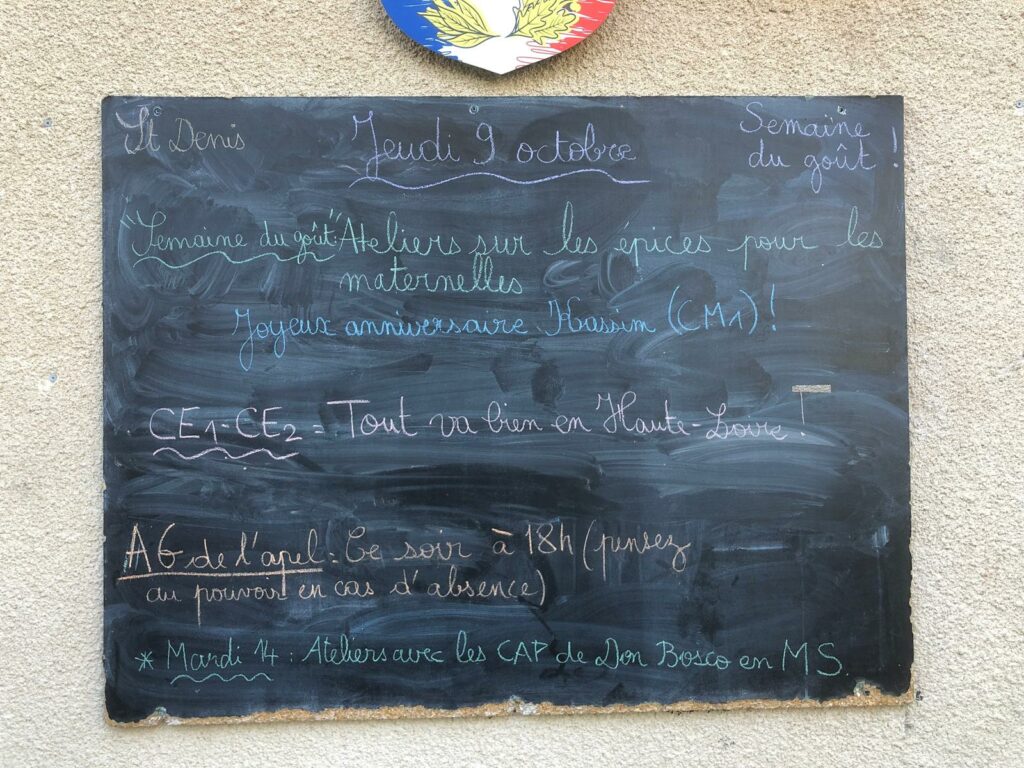 St Denis
Jeudi 9 octobre
Semaine
du goût !
"Semaine du goût": Ateliers sur les épices pour les
maternelles
Joyeux anniversaire Kassim (CM1) !
CE1-CE2 = Tout va bien en Haute-Loire !
AG de l'apel : Ce soir à 18h (pensez
au pouvoir en cas d'absence)
* Mardi 14 : Ateliers avec les CAP de Don Bosco en MS.